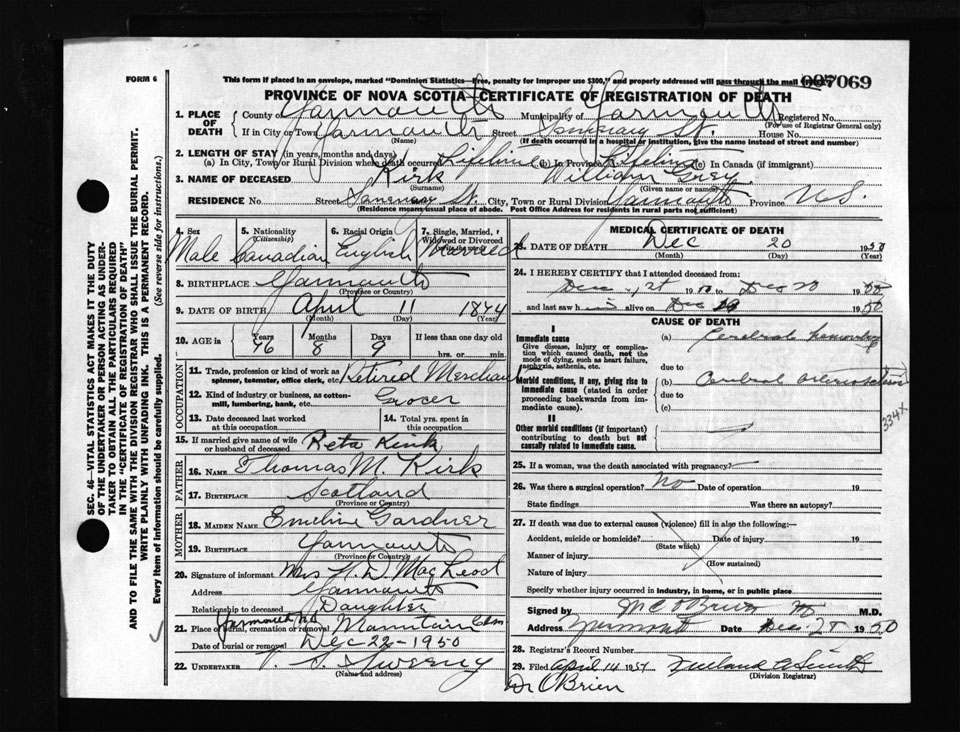 FORM 6
This form if placed in an envelope, marked "Dominion Statistics—Free, penalty for improper use $300," and properly addressed will pass through the mail
007069
PROVINCE OF NOVA SCOTIA—CERTIFICATE OF REGISTRATION OF DEATH
1. PLACE OF DEATH County of Yarmouth Municipality of Yarmouth Registered No.
(For use of Registrar General only)
If in City or Town Yarmouth Street St. House No.
(Name) (If death occurred in a hospital or institution, give the name instead of street and number)
2. LENGTH OF STAY (in years, months and days)
(a) In City, Town or Rural Division where death occurred Lifetime (b) In Province Lifetime (c) In Canada (if immigrant)
3. NAME OF DECEASED Kirk William Grey
(Surname) (Given name or names)
RESIDENCE No. Street St. City, Town or Rural Division Yarmouth Province N.S.
(Residence means usual place of abode. Post Office Address for residents in rural parts not sufficient)
4. Sex 5. Nationality 6. Racial Origin 7. Single, Married, Widowed or Divorced
(Citizenship)
Male Canadian English Married
8. BIRTHPLACE Yarmouth
(Province or Country)
9. DATE OF BIRTH April 11 1874
(Month) (Day) (Year)
10. AGE in Years Months Days If less than one day old
76 8 9 hrs. or min.
OCCUPATION
11. Trade, profession or kind of work as spinner, teamster, office clerk, etc. Retired Merchant
12. Kind of industry or business, as cotton-mill, lumbering, bank, etc. Grocer
13. Date deceased last worked at this occupation
14. Total yrs. spent in this occupation
15. If married give name of wife or husband of deceased Reta Kirk
FATHER
16. NAME Thomas M. Kirk
17. BIRTHPLACE Scotland
(Province or Country)
MOTHER
18. MAIDEN NAME Emeline Gardner
19. BIRTHPLACE Yarmouth
(Province or Country)
20. Signature of informant Mrs H. D. MacLeod
Address Yarmouth
Relationship to deceased Daughter
21. Place of burial, cremation or removal Yarmouth N.S. Mountain
Date of burial or removal Dec 22-1950
22. UNDERTAKER V. S. Sweeny
(Name and address)
MEDICAL CERTIFICATE OF DEATH
23. DATE OF DEATH Dec 20 1950
(Month) (Day) (Year)
24. I HEREBY CERTIFY that I attended deceased from:
Dec 1950 to Dec 20 1950
and last saw h im alive on Dec 1950
CAUSE OF DEATH
I
Immediate cause
Give disease, injury or complication which caused death, not the mode of dying, such as heart failure, asphyxia, asthenia, etc.
(a) Cerebral hemorrhage
due to
Morbid conditions, if any, giving rise to immediate cause (stated in order proceeding backwards from immediate cause).
(b) Cerebral arteriosclerosis
due to
(c)
334X
II
Other morbid conditions (if important) contributing to death but not causally related to immediate cause.
25. If a woman, was the death associated with pregnancy?
26. Was there a surgical operation? No Date of operation 19
State findings Was there an autopsy?
27. If death was due to external causes (violence) fill in also the following:—
Accident, suicide or homicide? Date of injury 19
(State which)
Manner of injury
(How sustained)
Nature of injury
Specify whether injury occurred in industry, in home, or in public place
Signed by M C O'Brien M.D.
Address Yarmouth Date Dec. 1950
28. Registrar's Record Number
29. Filed April 14 1951 Smith
(Division Registrar)
Dr O'Brien
SEC. 46—VITAL STATISTICS ACT MAKES IT THE DUTY
OF THE UNDERTAKER OR PERSON ACTING AS UNDERTAKER TO OBTAIN ALL THE PARTICULARS REQUIRED
IN THE "CERTIFICATE OF REGISTRATION OF DEATH"
AND TO FILE THE SAME WITH THE DIVISION REGISTRAR WHO SHALL ISSUE THE BURIAL PERMIT.
WRITE PLAINLY WITH UNFADING INK. THIS IS A PERMANENT RECORD.
Every item of information should be carefully supplied. (See reverse side for instructions.)